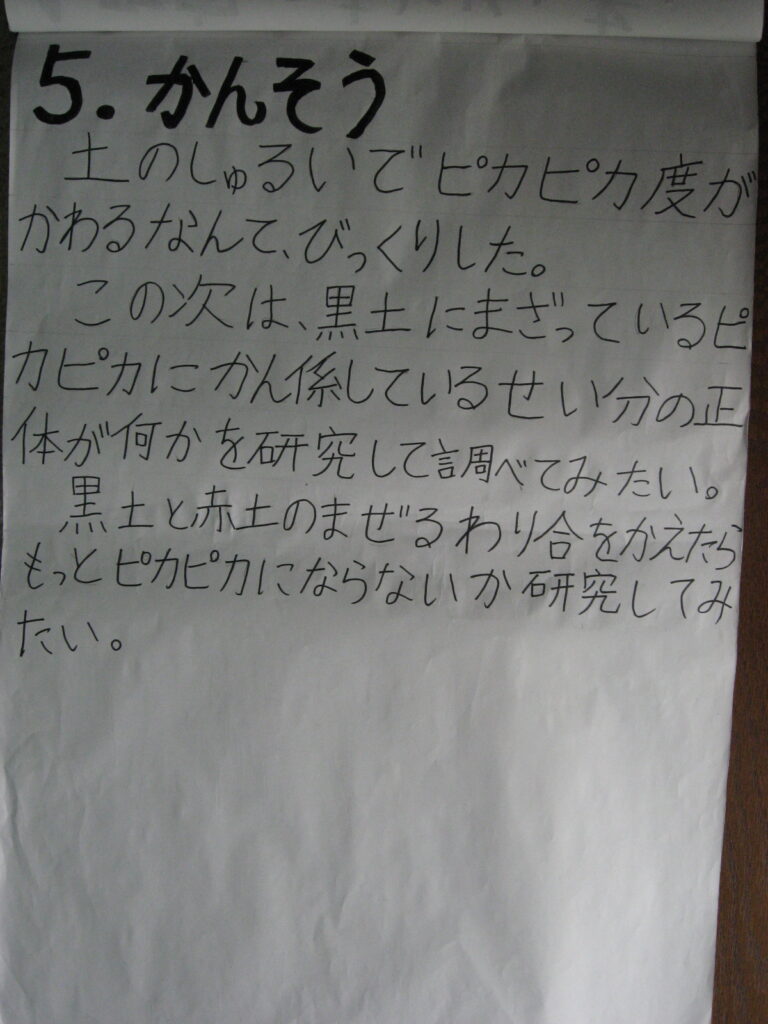 5. かんそう
土のしゅるいでピカピカ度が
かわるなんて、びっくりした。
この次は、黒土にまざっているピ
カピカにかん係しているせい分の正
体が何かを研究して調べてみたい。
黒土と赤土のまぜるわり合をかえたら
もっとピカピカにならないか研究してみ
たい。